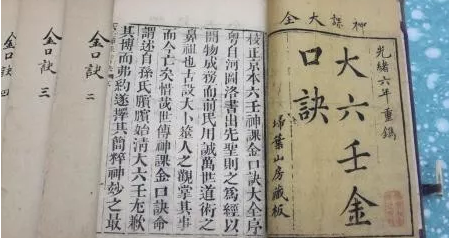 神課大全
光緒六年重鐫
大六壬金
口訣
埽葉山房藏板
校正京本六壬神課金口訣大全序
粵自河圖洛書出先聖則之為經以
開物成務而前民用誠萬世道術之
鼻祖也古設大卜筮人之掌其事
而今亡矣惜哉世傳神課金口訣命
謂述自孫氏臏始大六壬
其博而弗約遂擇其簡粹神妙之最
金口訣 二
金口訣 三
金口訣 四